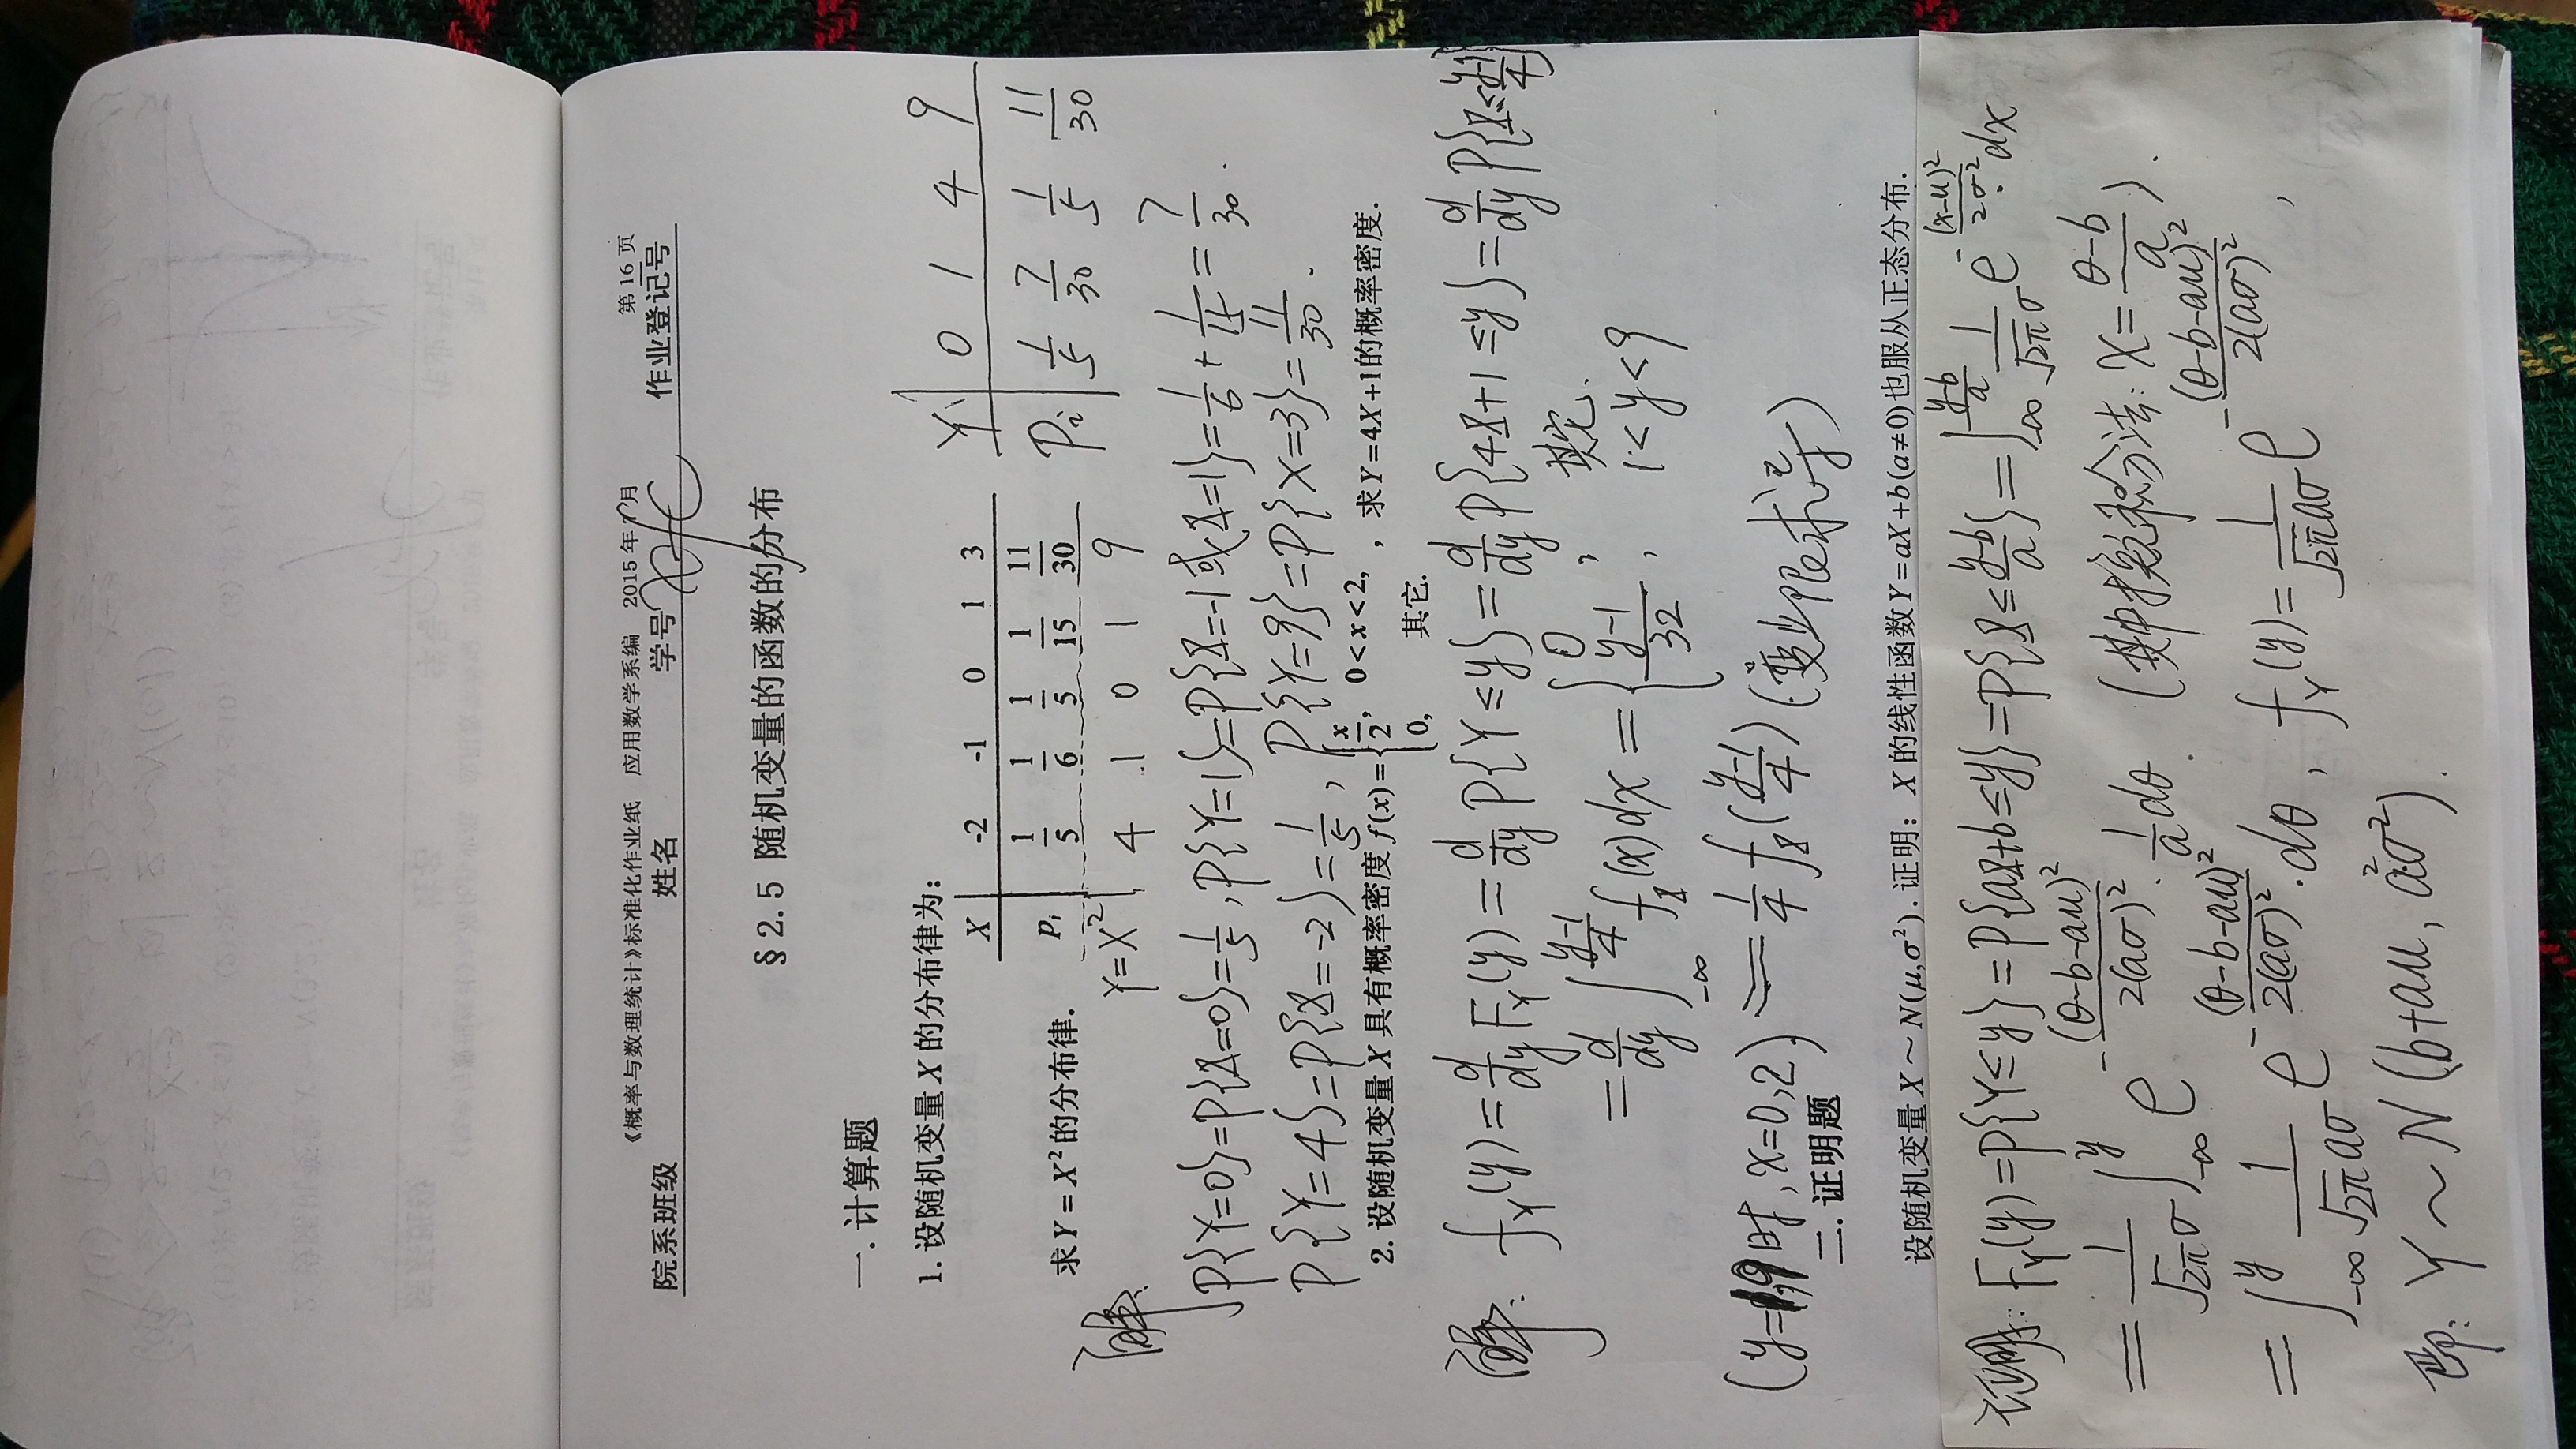 《概率与数理统计》标准化作业纸 应用数学系编 2015年7月 第16页
院系班级 姓名 学号 作业登记号
§2.5 随机变量的函数的分布
一.计算题
1.设随机变量X的分布律为:
X -2 -1 0 1 3
p_i 1/5 1/6 1/5 1/15 11/30
求Y=X²的分布律.
Y=X² 4 1 0 1 9
Y 0 1 4 9
P_i 1/5 7/30 1/5 11/30
解:
P{Y=0}=P{X=0}=1/5, P{Y=1}=P{X=-1或X=1}=1/6+1/15=7/30.
P{Y=4}=P{X=-2}=1/5, P{Y=9}=P{X=3}=11/30.
2.设随机变量X具有概率密度f(x)={x/2, 0<x<2, 0, 其它. ,求Y=4X+1的概率密度.
解: f_Y(y)=d/dy F_Y(y)=d/dy P{Y≤y}=d/dy P{4X+1≤y}=d/dy P{X≤(y-1)/4}
=d/dy ∫_{-∞}^{(y-1)/4} f_X(x)dx={0, 其它. (y-1)/32, 1<y<9
(y=1,9时,x=0,2) =1/4 f_X((y-1)/4) (变上限求导)
二.证明题
设随机变量X~N(μ,σ²).证明: X的线性函数Y=aX+b(a≠0)也服从正态分布.
证明: F_Y(y)=P{Y≤y}=P{aX+b≤y}=P{X≤(y-b)/a}=∫_{-∞}^{(y-b)/a} 1/(√2π σ) e^{-(x-μ)²/(2σ²)} dx
=1/(√2π σ) ∫_{-∞}^{y} e^{-(θ-b-aμ)²/(2(aσ)²)}·1/a dθ. (其中换元积分法: x=(θ-b)/a).
=∫_{-∞}^{y} 1/(√2π aσ) e^{-(θ-b-aμ)²/(2(aσ)²)}·dθ, f_Y(y)=1/(√2π aσ) e^{-(θ-b-aμ)²/(2(aσ)²)},
即: Y~N(b+aμ, a²σ²).